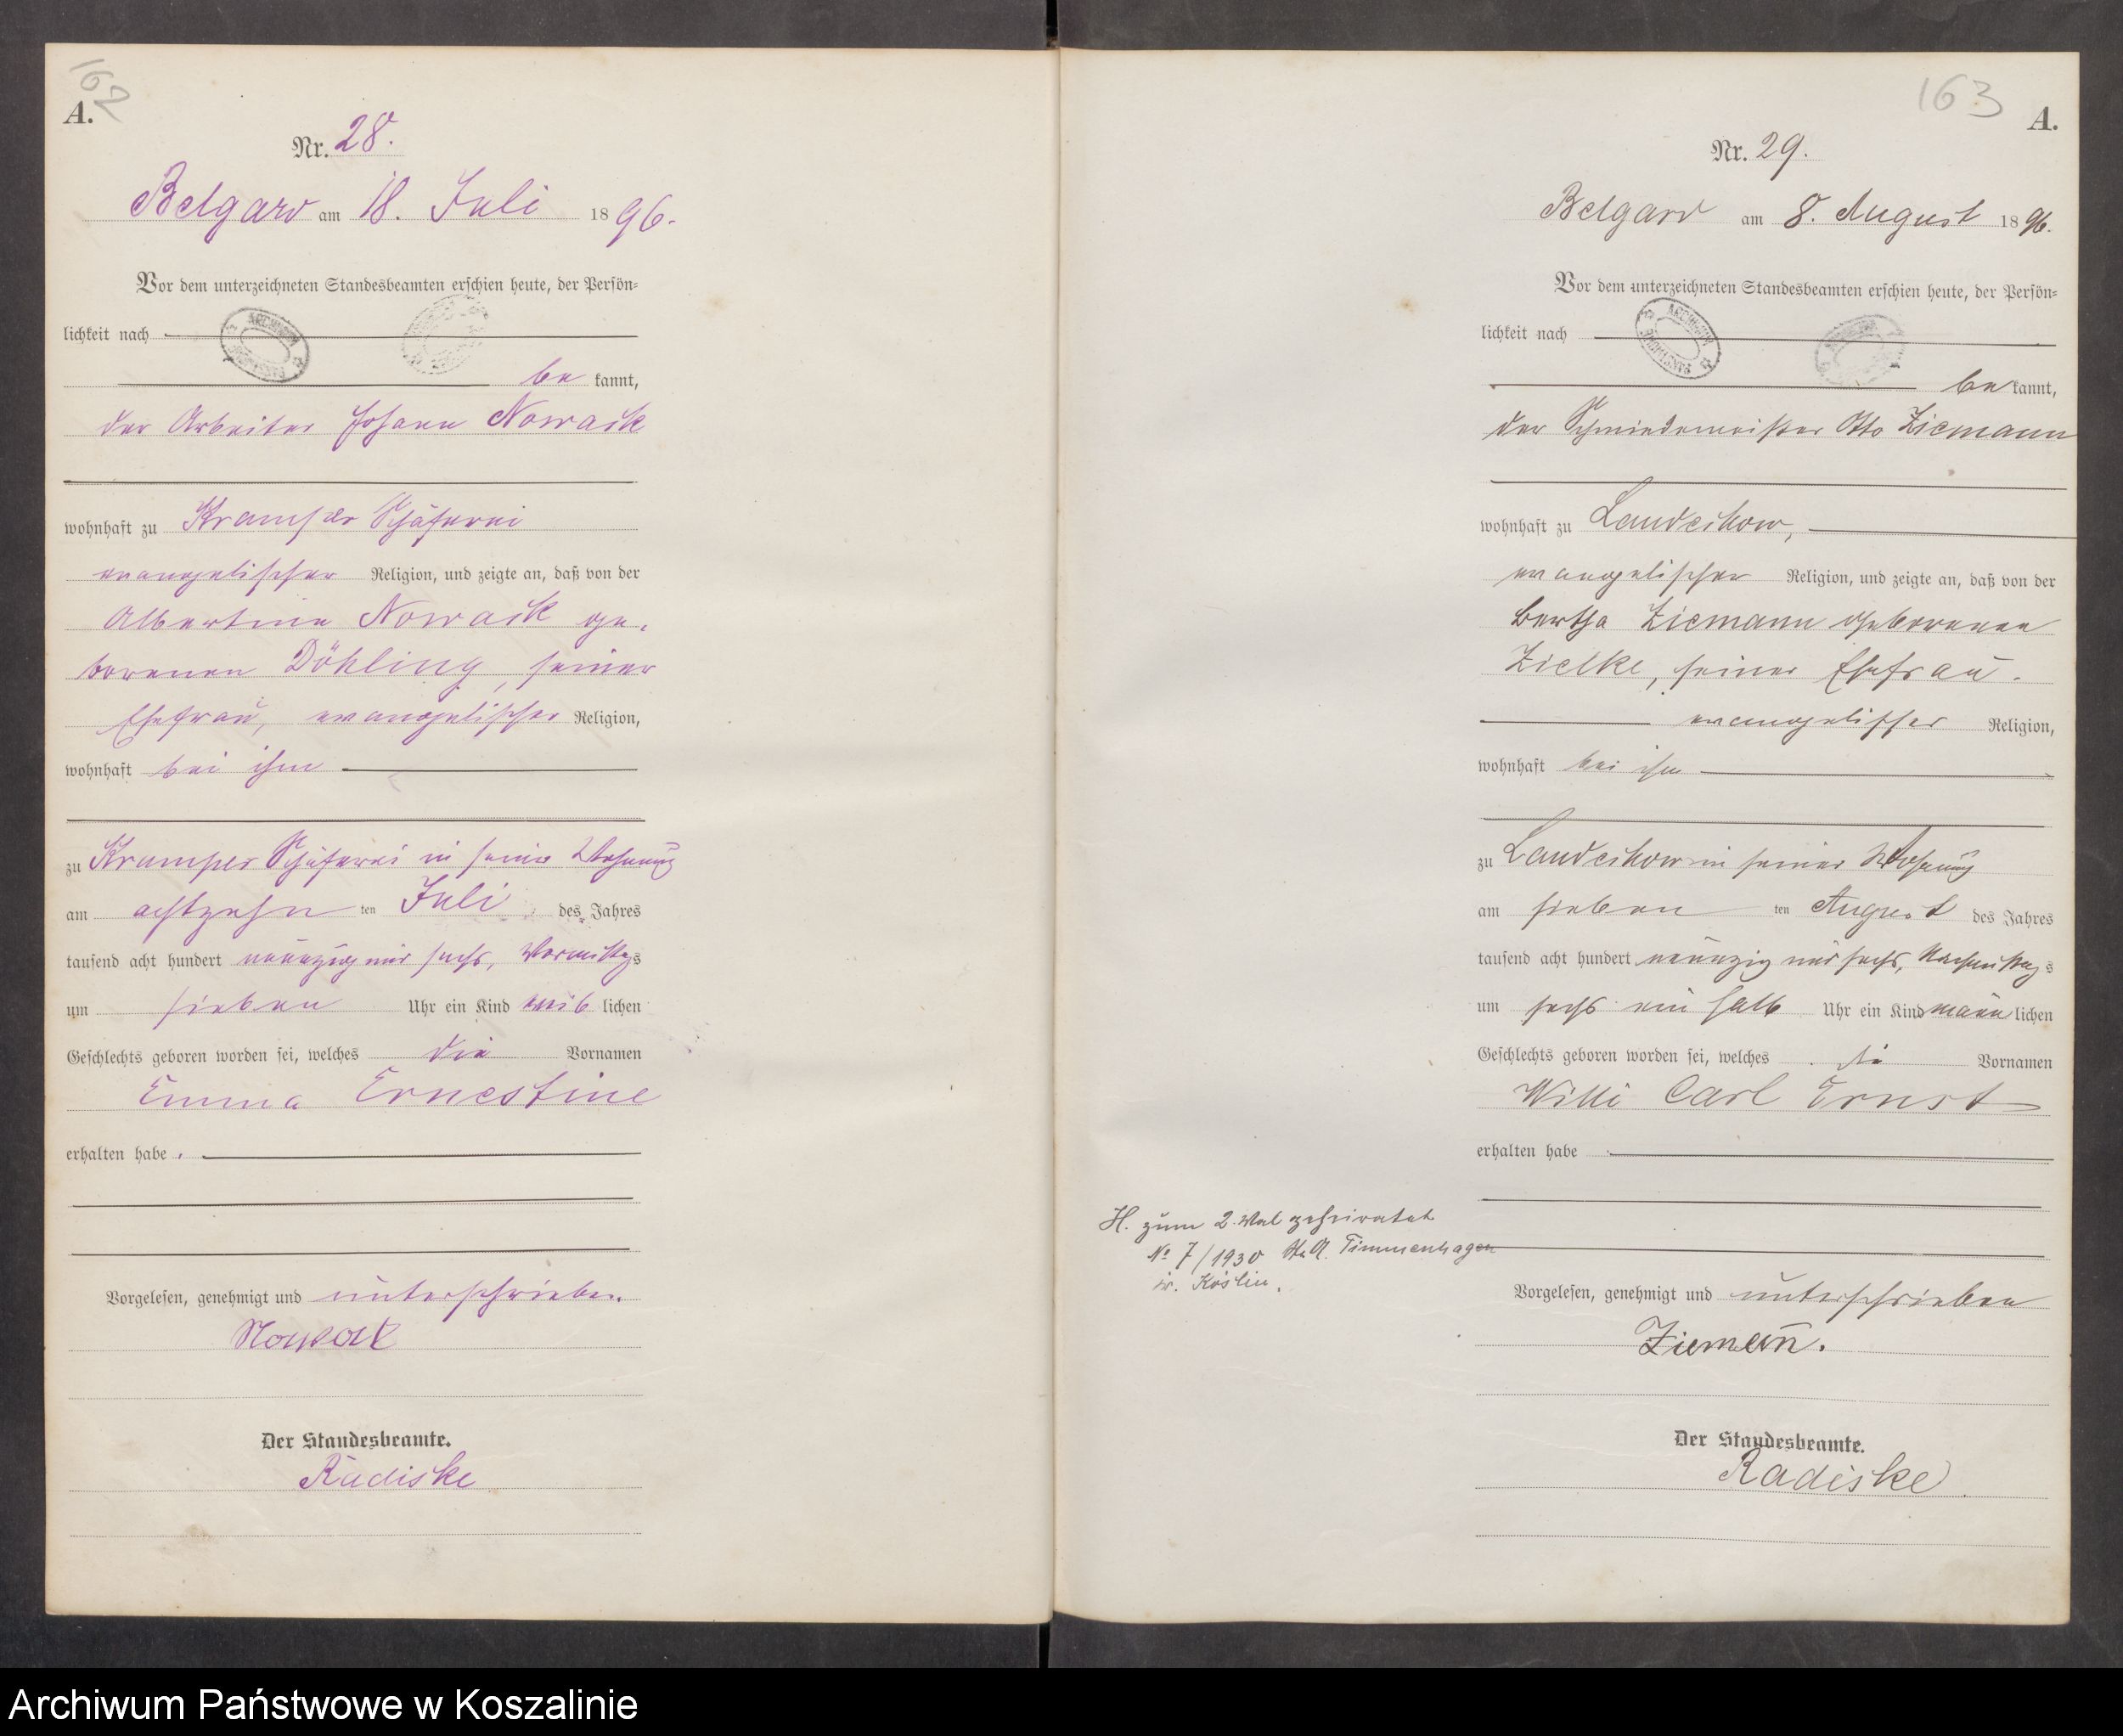 162
A.
Nr. 28.
Belgard am 18. Juli 1896.
Vor dem unterzeichneten Standesbeamten erschien heute, der Persön-
lichkeit nach
be kannt,
der Arbeiter Johann Nowack
wohnhaft zu Kramper Schäferei
evangelischer Religion, und zeigte an, daß von der
Albertine Nowack ge-
borenen Döhling, seiner
Ehefrau, evangelischer Religion,
wohnhaft bei ihm
zu Kramper Schäferei in seiner Wohnung
am achtzehn ten Juli des Jahres
tausend acht hundert neunzig und sechs, Vormittags
um sieben Uhr ein Kind weib lichen
Geschlechts geboren worden sei, welches die Vornamen
Emma Ernestine
erhalten habe.
Vorgelesen, genehmigt und unterschrieben.
Nowack
Der Standesbeamte.
Radiske
163
A.
Nr. 29.
Belgard am 8. August 1896.
Vor dem unterzeichneten Standesbeamten erschien heute, der Persön-
lichkeit nach
be kannt,
der Schmiedemeister Otto Ziemann
wohnhaft zu Landechow,
evangelischer Religion, und zeigte an, daß von der
Bertha Ziemann geborenen
Zielke, seiner Ehefrau.
evangelischer Religion,
wohnhaft bei ihm
zu Landechow in seiner Wohnung
am sieben ten August des Jahres
tausend acht hundert neunzig und sechs, Nachmittags
um sechs ein halb Uhr ein Kind männ lichen
Geschlechts geboren worden sei, welches die Vornamen
Willi Carl Ernst
erhalten habe
H. zum 2. Mal geheiratet
№ 7/1930 St.A. Timmenhagen
Kr. Köslin.
Vorgelesen, genehmigt und unterschrieben
Ziemann.
Der Standesbeamte.
Radiske
Archiwum Państwowe w Koszalinie